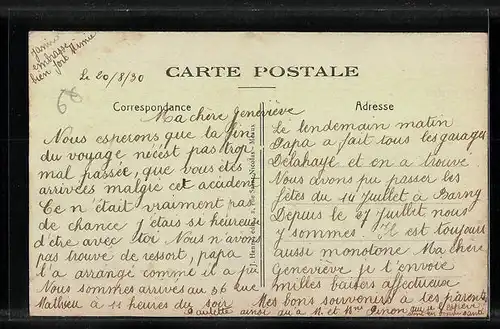 Janine
embrasse
bien fort Mimie
68
Le 20/8/30
CARTE POSTALE
Correspondance
Adresse
Ma chère Geneviève
Nous esperons que la fin
du voyage n'écest pas trop
mal passée, que vous êtes
arrivées malgré cet accident
Ce n'était vraiment pas
de chance j'étais si heureuse
d'être avec toi Nous n'avons
pas trouvé de ressort, papa
l'a arrangé comme il a pu
Nous sommes arrivés au 36 rue
Mathieu à 11 heures du soir
Le lendemain matin
Papa a fait tous les garages
Delahaye et en a trouvé
Nous avons pu passer les
fêtes du 14 Juillet à Barny
Depuis le 27 Juillet nous
y sommes. Il est toujours
aussi monotone Ma chère
Geneviève je t'envoie
milles baisers affectueux
Mes bons souvenirs à tes parents
Paulette ainsi qu'à M. et Mme Pinon qui je espère
sont en bonne santé